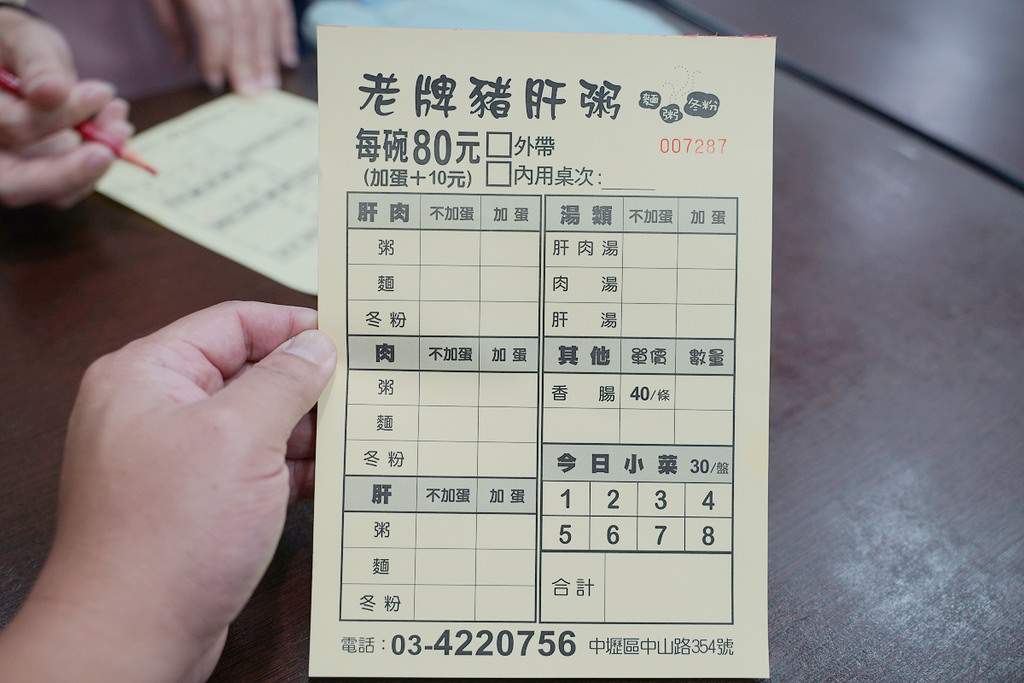 老牌豬肝粥 麵 粥 冬粉
每碗80元 □外帶 007287
(加蛋+10元) □內用桌次:____
肝肉 不加蛋 加蛋
粥
麵
冬粉
肉 不加蛋 加蛋
粥
麵
冬粉
肝 不加蛋 加蛋
粥
麵
冬粉
湯類 不加蛋 加蛋
肝肉湯
肉湯
肝湯
其他 單價 數量
香腸 40/條
今日小菜 30/盤
1 2 3 4
5 6 7 8
合計
電話:03-4220756 中壢區中山路354號